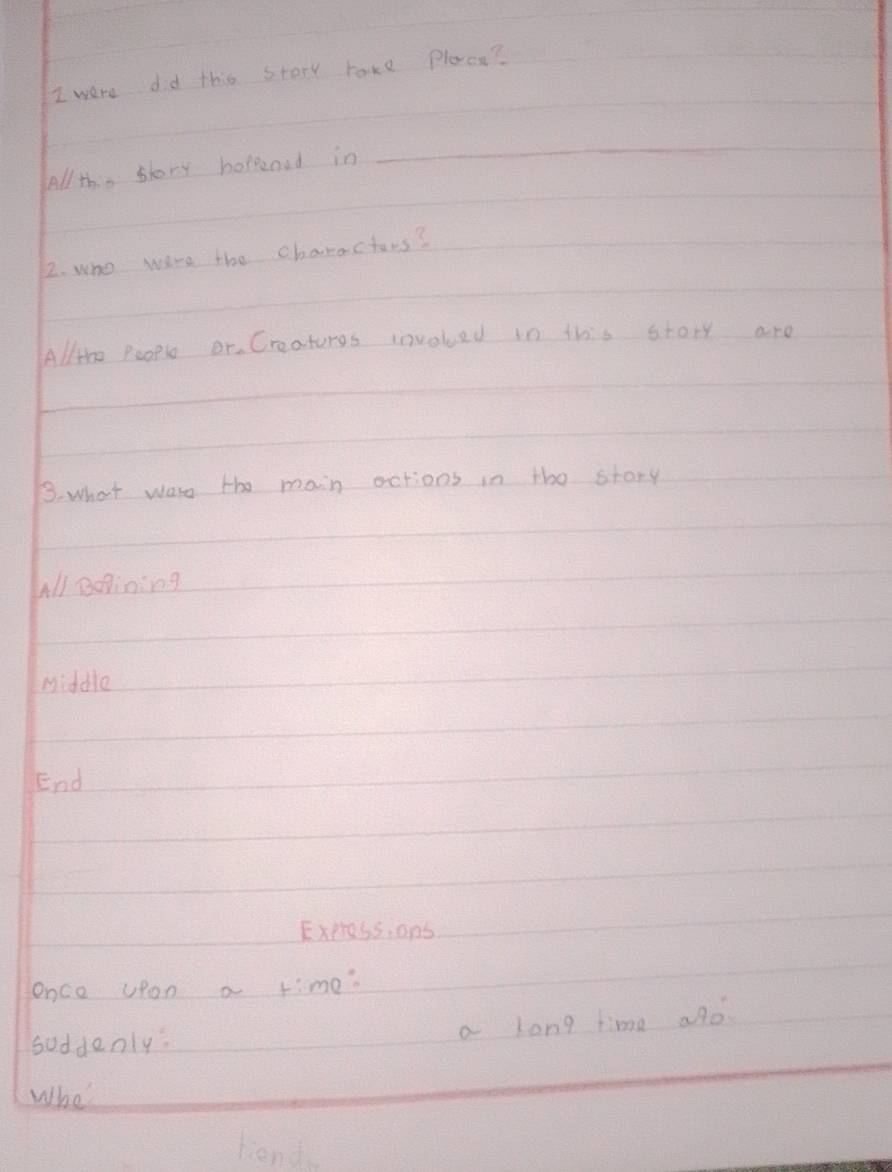 1 were did this story take place?
All this story happened in
2. who were the characters?
All the people or. Creatures involved in this story are
3. what were the main actions in the story
All Begining
Middle
End
Expressions
Once upon a time:
a long time ago
suddenly:
Whe